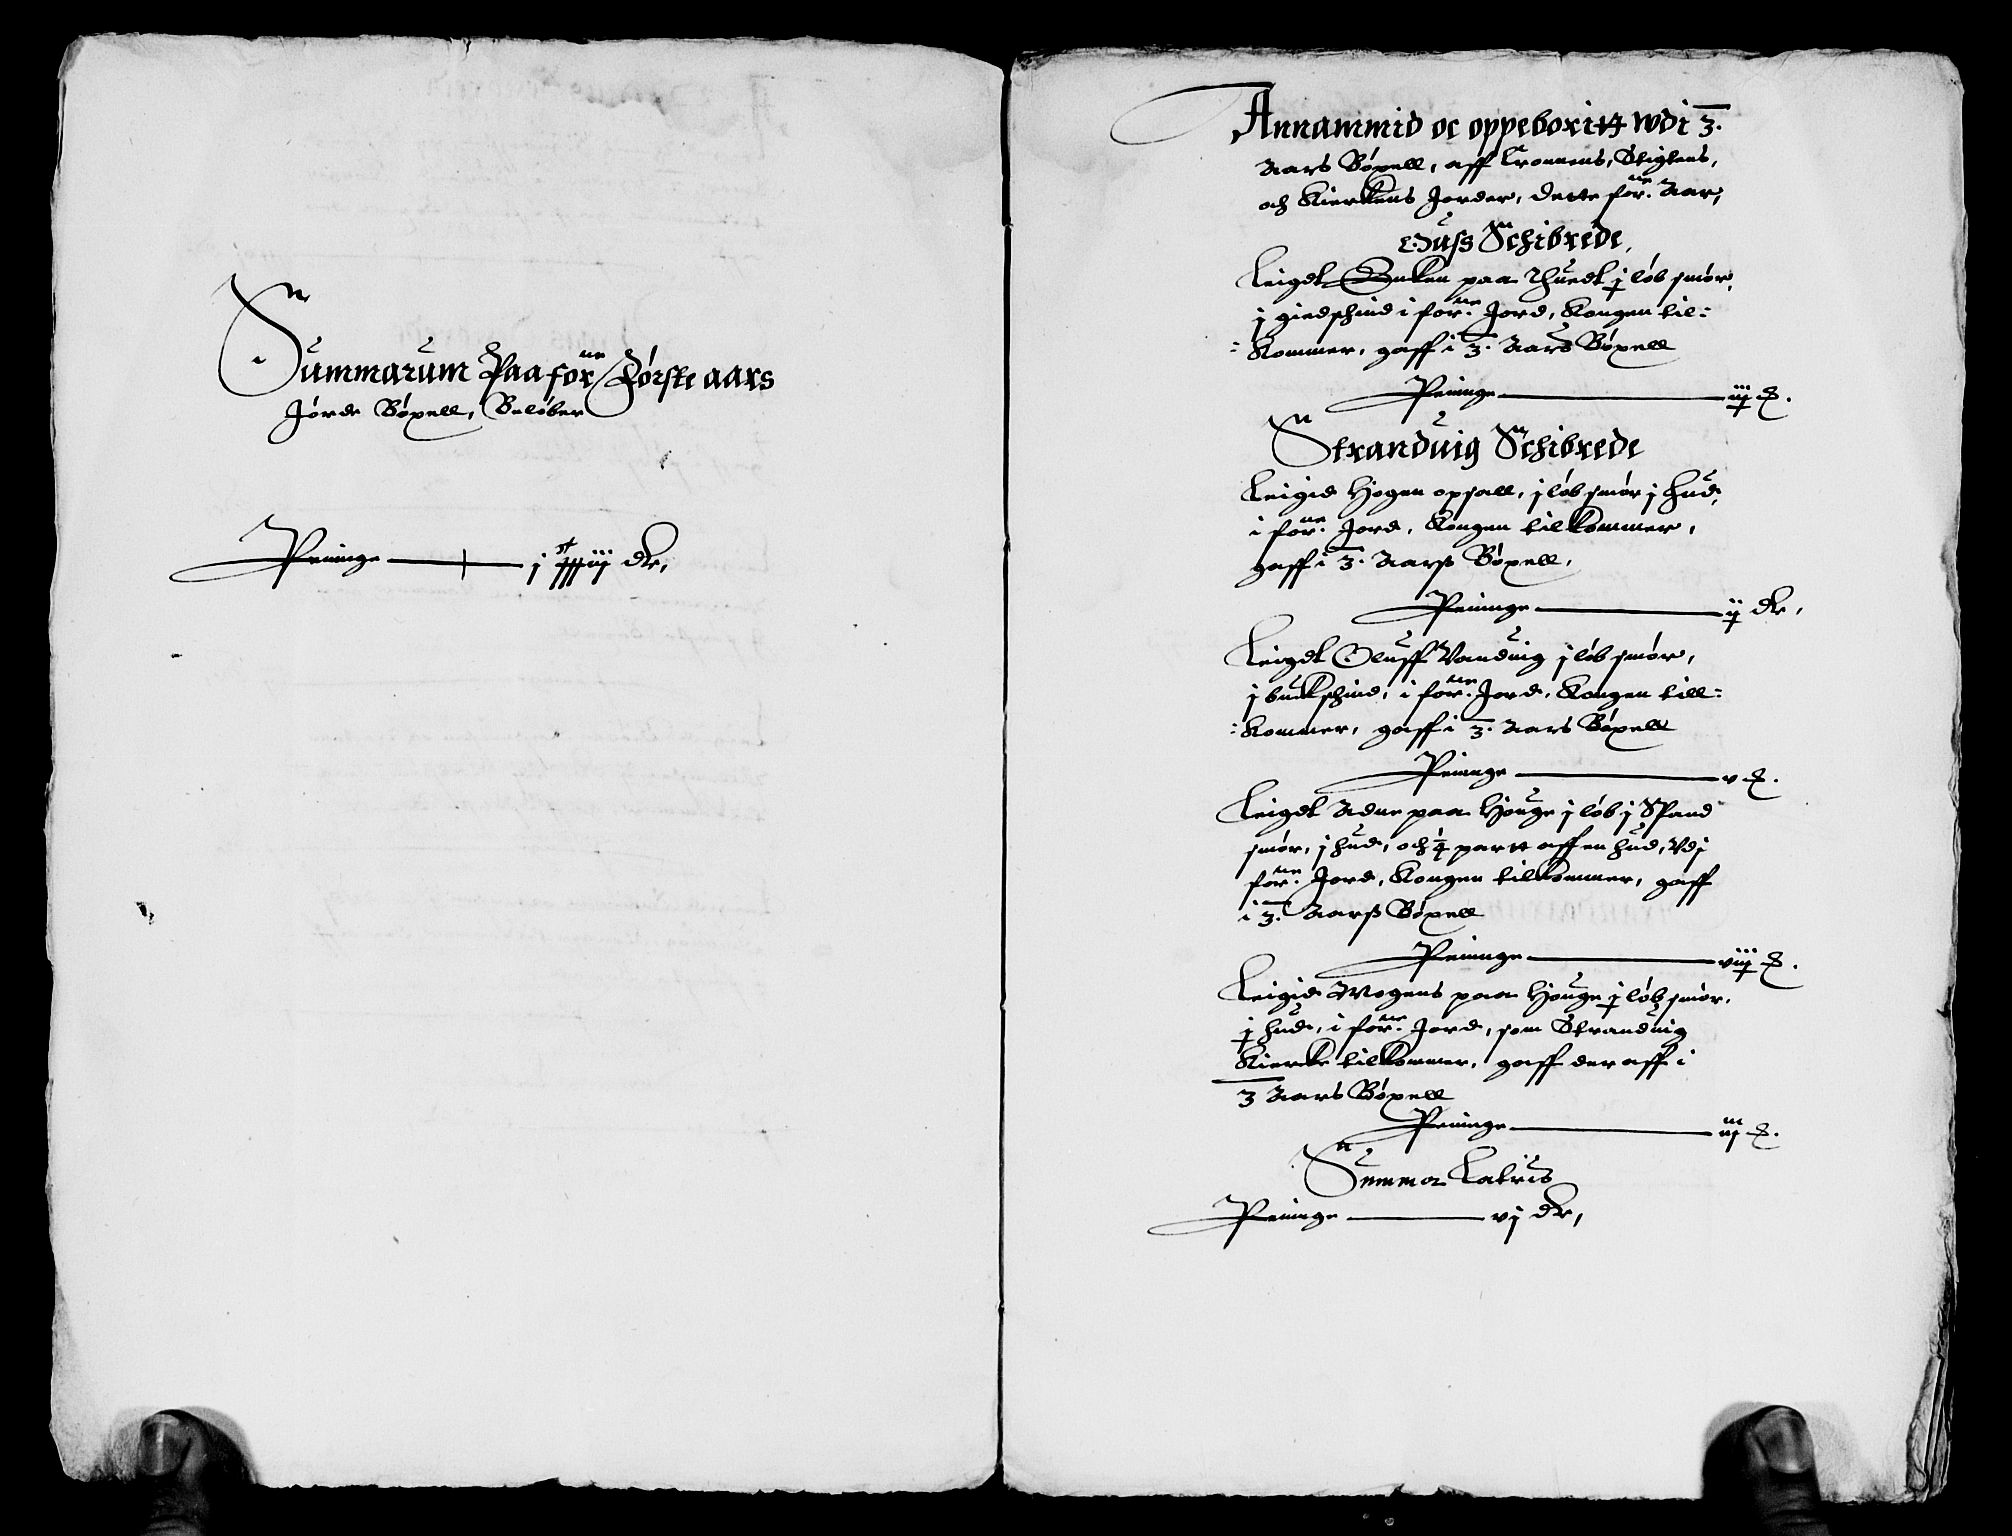 Summarum Paa forne Første aars
Jorde Bøxell, Beløber
Peninge — j st xxxiij dlr,
Annammid oc oppeboritt wdi 3.
Aars Bøxell, aff Cronens, Stigtens,
och Kierkens Jorder, dette forne. Aar,
Ouss Schibrede,
Leigdt Enken paa Thuedt j løb smør,
j giedschind i forne. Jord, Kongen til:
:Kommer, gaff i 3. Aars Bøxell
Peninge — iij
Stranduig Schibrede
Leigid Hogen opsall, j løb smør j hud,
i forne. Jord, Kongen tilkommer,
gaff i 3. Aarss Bøxell,
Peninge — ij dlr,
Leigdt Oluff Vanduig j løb smør,
j buckschind, i forne. Jord, Kongen till:
:Kommer, gaff i 3. Aars Bøxell
Peninge — v
Leigdt Adne paa Houge j løb j Spand
smør, j hud, och 1/4 partt aff en hud, Vdj
forne. Jord, Kongen tilkommer, gaff
i 3. Aarss Bøxell
Peninge — viij
Leigid Mogens paa Houge j løb smør,
j hud, i forne. Jord, som Stranduig
Kiercke tilkommer, gaff der aff i
3 Aars Bøxell
Peninge —
Summa Latris
Peninge — vj dlr,